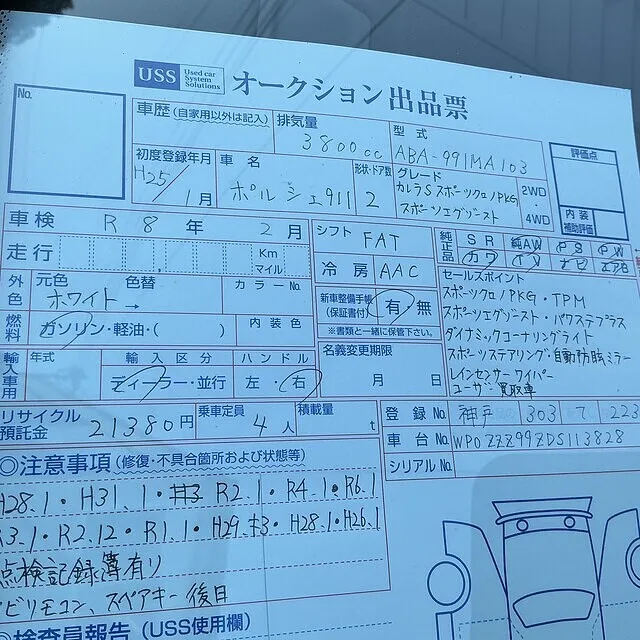 USS Used car System Solutions オークション出品票
No.
車歴(自家用以外は記入) 排気量 3800cc 型式 ABA-991MA103
評価点
初度登録年月 H25/1月 車名 ポルシェ911 形状・ドア数 2
グレード カレラS スポーツクロノPKG スポーツエグゾースト 2WD 4WD
内装 補助評価
車検 R8年2月 シフト FAT
純正品 SR 純AW PS PW
カワ TV ナビ エアB
走行 Km マイル 冷房 AAC
外色 元色 ホワイト→ 色替 カラーNo.
新車整備手帳(保証書付) 有 無
※書類と一緒に保管下さい。
セールスポイント
スポーツクロノPKG・TPM
スポーツエグゾースト・パワステプラス
ダイナミックコーナリングライト
スポーツステアリング・自動防眩ミラー
レインセンサーワイパー
ユーザー買取車
燃料 ガソリン・軽油・( ) 内装色
名義変更期限 月 日
輸入車用 年式 輸入区分 ディーラー・並行 ハンドル 左・右
リサイクル預託金 21380円 乗車定員 4人 積載量 t
登録No. 神戸 303 223
車台No. WP0ZZZ99ZDS113828
シリアルNo.
◎注意事項(修復・不具合箇所および状態等)
H28.1・H31.1・R2.1・R4.1・R6.1
R3.1・R2.12・R1.1・H29.・H28.1・H26.1
点検記録簿有り
ビリモコン、スペアキー後日
◎検査員報告(USS使用欄)